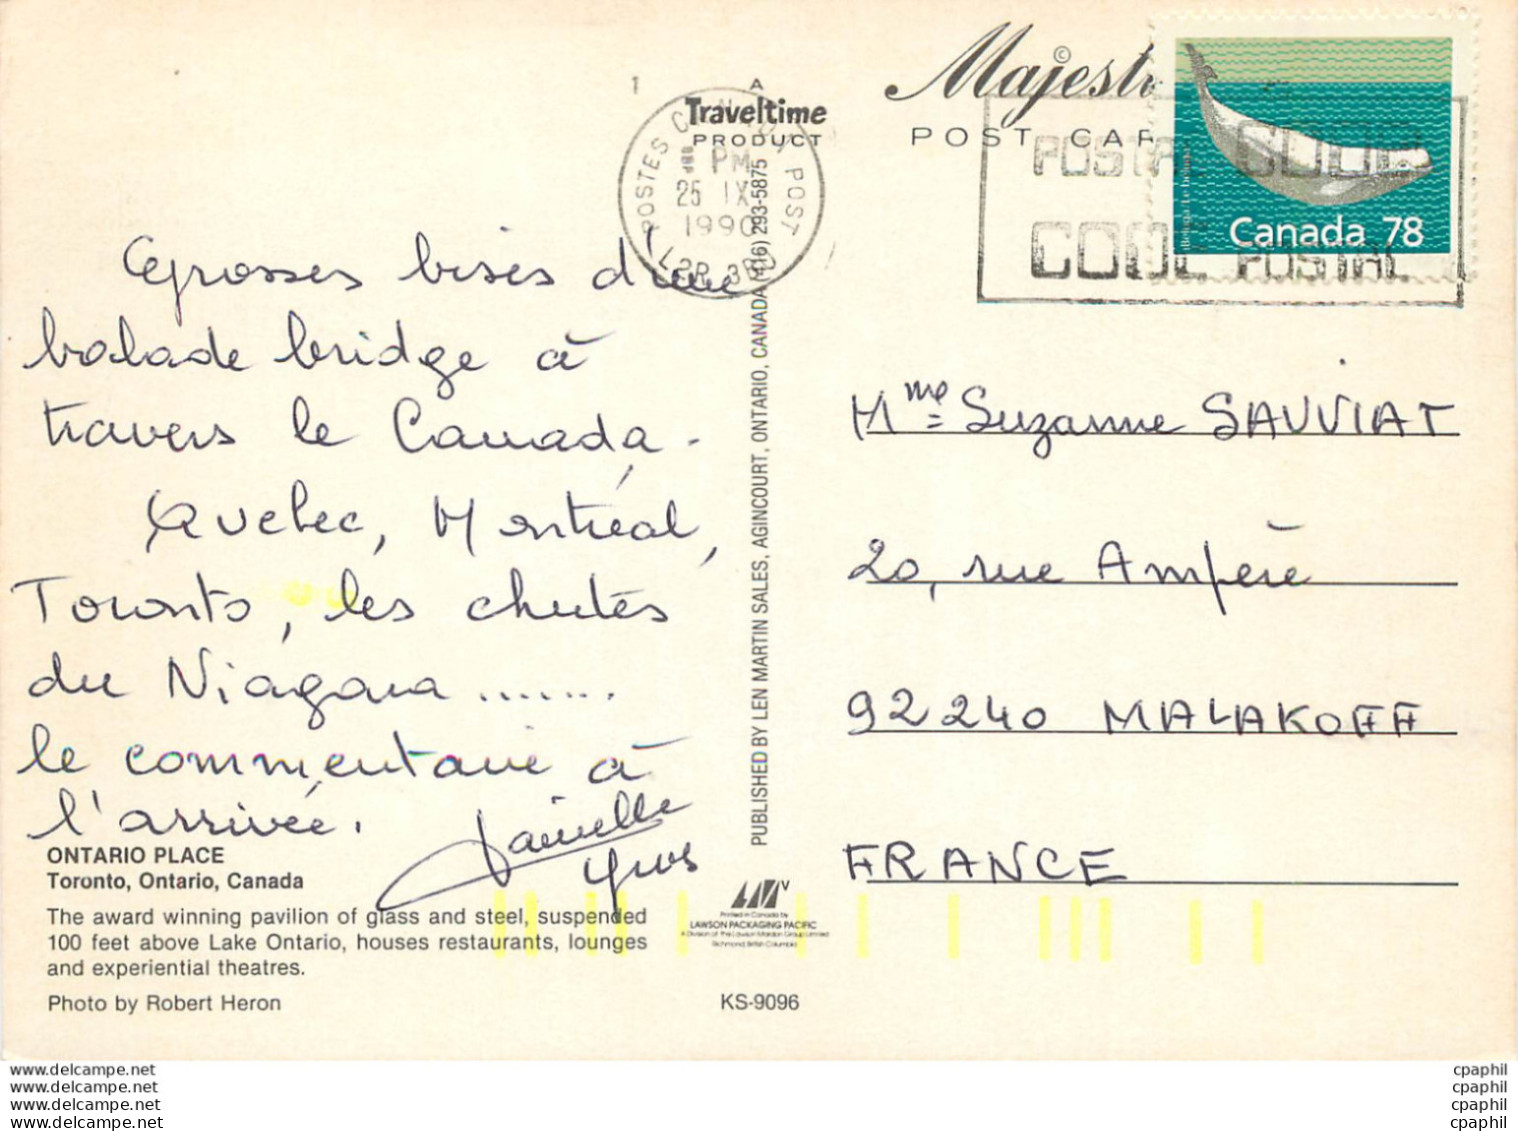 Grosses bises d'une
balade bridge à
travers le Canada.
Quebec, Montréal,
Toronto, les chutes
du Niagara .......
le commentaire à
l'arrivée.
Yves
ONTARIO PLACE
Toronto, Ontario, Canada
The award winning pavilion of glass and steel, suspended
100 feet above Lake Ontario, houses restaurants, lounges
and experiential theatres.
Photo by Robert Heron
1
A
Traveltime
PRODUCT
POSTES CANADA POST
PM
25 IX
1990
L2R 3B0
PUBLISHED BY LEN MARTIN SALES, AGINCOURT, ONTARIO, CANADA (416) 293-5875
Printed in Canada by
LAWSON PACKAGING PACIFIC
A Division of the Lawson Mardon Group Limited
Richmond, British Columbia
KS-9096
©
Majesti
POST CAR
POSTAL CODE
CODE POSTAL
Canada 78
Mme Suzanne SAUVIAT
20, rue Ampère
92240 MALAKOFF
FRANCE
www.delcampe.net
www.delcampe.net
www.delcampe.net
www.delcampe.net
cpaphil
cpaphil
cpaphil
cpaphil